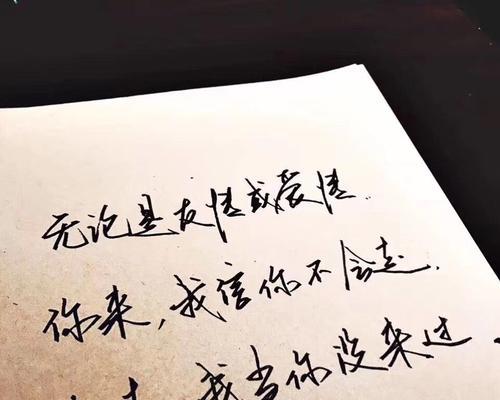 无论是友情或爱情
你来，我信你不会走，
我当你没来过